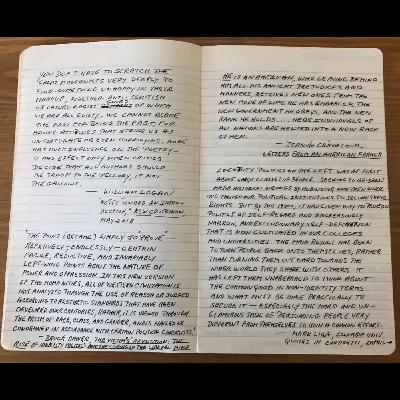 YOU DON'T HAVE TO SCRATCH THE
GREAT MODERNISTS VERY DEEPLY TO
FIND SOMETHING UNHAPPY IN THEIR
MAKEUP, WHETHER ANTI-SEMITISM
OR CASUAL RACIST OF WHICH
WE ARE ALL GUILTY. WE CANNOT BLAME
THE PAST FOR BEING THE PAST, FOR
HAVING ATTITUDES THAT STRIKE US AS
UNFORTUNATE OR EVEN HORRIFYING.
HAS MUCH INFLUENCE ON THE POETRY—
IT HAS EFFECT ONLY WHEN CRITICS
DECIDE THAT AUTHORS SHOULD
BE TAKEN TO THE PILLORY, IF NOT
THE GALLOWS.
— WILLIAM LOGAN
"NOTES TOWARD AN INTRO-
DUCTION," NEW CRITERION
MAY 2018
"THE POINT [BECAME] SIMPLY TO 'PROVE'
REPETITIVELY—ENDLESSLY—CERTAIN
FACILE, REDUCTIVE, AND INVARIABLY
LEFT-WING POINTS ABOUT THE NATURE OF
POWER AND OPPRESSION. IN THIS NEW VERSION
OF THE HUMANITIES, ALL OF WESTERN CIVILIZATION IS
NOT ANALYZED THROUGH THE USE OF REASON OR JUDGED
ACCORDING TO AESTHETIC STANDARDS THAT HAVE BEEN
DEVELOPED OVER CENTURIES; RATHER, IT IS VIEWED THROUGH
THE PRISM OF RACE, CLASS, AND GENDER, AND IS HAILED OR
CONDEMNED IN ACCORDANCE WITH CERTAIN POLITICAL CHECKLISTS."
— BRUCE BAWER, THE VICTIMS' REVOLUTION: THE
RISE OF IDENTITY STUDIES AND THE CLOSING OF THE LIBERAL MIND
HE IS AN AMERICAN, WHO, LEAVING BEHIND
HIM ALL HIS ANCIENT PREJUDICES AND
MANNERS, RECEIVES NEW ONES FROM THE
NEW MODE OF LIFE HE HAS EMBRACED, THE
NEW GOVERNMENT HE OBEYS, AND THE NEW
RANK HE HOLDS.... HERE INDIVIDUALS OF
ALL NATIONS ARE MELTED INTO A NEW RACE
OF MEN.
— J. ST. JOHN CREVECOEUR,
LETTERS FROM AN AMERICAN FARMER
IDENTITY POLITICS ON THE LEFT WAS AT FIRST
ABOUT LARGE CLASSES OF PEOPLE... SEEKING TO REDRESS
MAJOR HISTORICAL WRONGS BY MOBILIZING AND THEN WORK-
ING THROUGH OUR POLITICAL INSTITUTIONS TO SECURE THEIR
RIGHTS. BUT BY THE 1980S, IT HAD GIVEN WAY TO PSEUDO
POLITICS OF SELF-REGARD AND INCREASINGLY
NARROW, AND EXCLUSIONARY SELF-DEFINITION
THAT IS NOW CULTIVATED IN OUR COLLEGES
AND UNIVERSITIES. THE MAIN RESULT HAS BEEN
TO TURN PEOPLE BACK ONTO THEMSELVES, RATHER
THAN TURNING THEM OUTWARD TOWARDS THE
WIDER WORLD THEY SHARE WITH OTHERS. IT
HAS LEFT THEM UNPREPARED TO THINK ABOUT
THE COMMON GOOD IN NON-IDENTITY TERMS
AND WHAT MUST BE DONE PRACTICALLY TO
SECURE IT — ESPECIALLY THE HARD AND UN-
GLAMOROUS TASK OF PERSUADING PEOPLE VERY
DIFFERENT FROM THEMSELVES TO JOIN A COMMON EFFORT.
— MARK LILLA, COLUMBIA UNIV
QUOTED IN